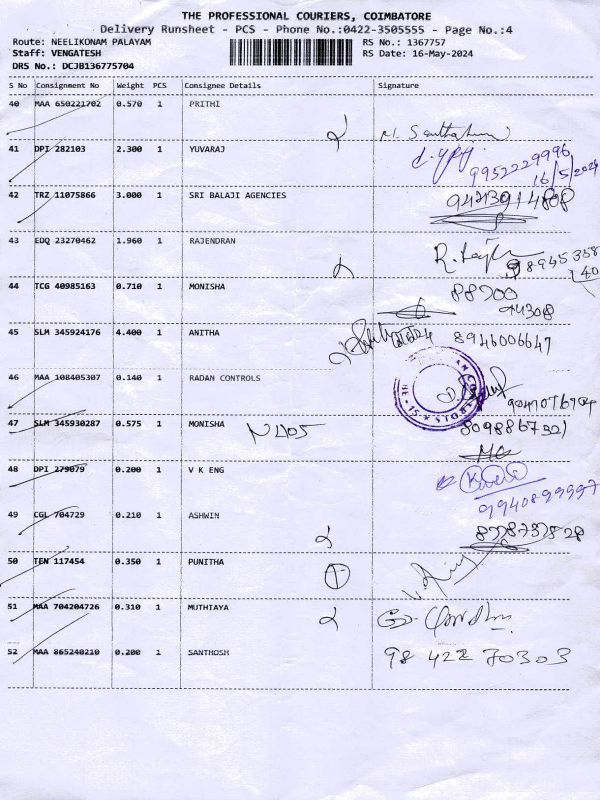 THE PROFESSIONAL COURIERS, COIMBATORE
Delivery Runsheet - PCS - Phone No.:0422-3505555 - Page No.:4
Route: NEELIKONAM PALAYAM RS No.: 1367757
Staff: VENGATESH RS Date: 16-May-2024
DRS No.: DCJB136775704
S No Consignment No Weight PCS Consignee Details Signature
40 MAA 650221702 0.570 1 PRITHI
41 DPI 282103 2.300 1 YUVARAJ
9952229996
16/5/2024
42 TRZ 11075866 3.000 1 SRI BALAJI AGENCIES
43 EDQ 23270462 1.960 1 RAJENDRAN
44 TCG 40985163 0.710 1 MONISHA
94308
45 SLM 345924176 4.400 1 ANITHA 8946006647
46 MAA 108405307 0.140 1 RADAN CONTROLS
47 SLM 345930287 0.575 1 MONISHA
48 DPI 279079 0.200 1 V K ENG
9940899997
49 CGL 704729 0.210 1 ASHWIN
50 TEN 117454 0.350 1 PUNITHA
51 MAA 704204726 0.310 1 MUTHIAYA
52 MAA 865240210 0.200 1 SANTHOSH 98 422 70303